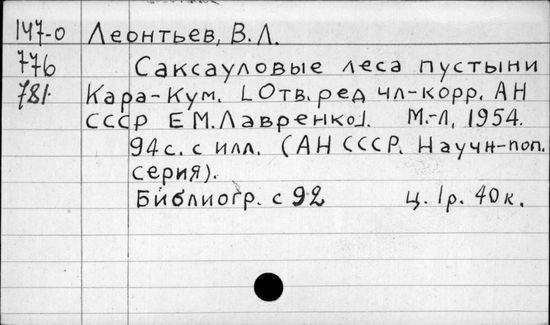 147-0 Леонтьев, В.Л.
776 Саксауловые леса пустыни
781. Кара-Кум. [Отв. ред чл-корр. АН
СССР Е М. Лавренко]. М.-Л, 1954.
94 с. с илл. (АН СССР. Научн-поп.
серия).
Библиогр. с 92 ц. 1р. 40к.